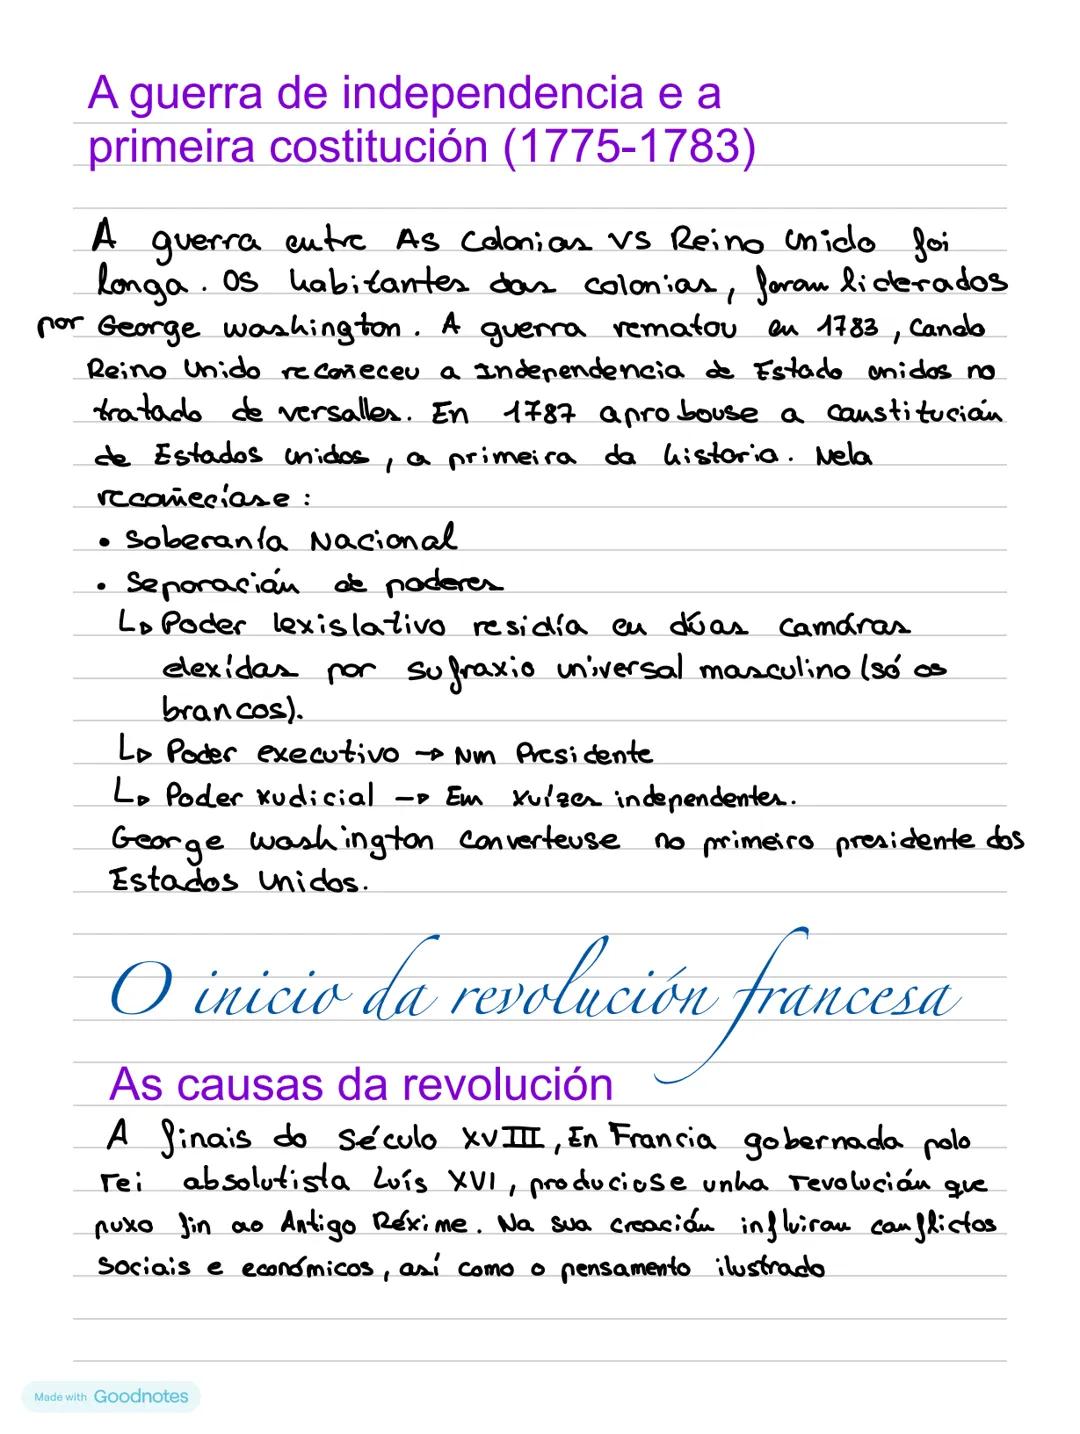 A guerra de independencia e a
primeira costitución (1775-1783)
A guerra entre As Colonias VS Reino Unido foi
longa. Os habitantes das colonias, foron liderados
por George washington. A guerra rematou en 1783, Cando
Reino Unido recoñeceu a Independencia de Estado unidos no
tratado de versalles. En 1787 aprobouse a constitución
de Estados unidos, a primeira da historia. Nela
recoñecíase:
• Soberanía Nacional
• Separación de poderes
↳ Poder lexislativo residía en dúas camáras
elexídas por sufraxio universal masculino (só os
brancos).
↳ Poder executivo → Nun Presidente
↳ Poder xudicial → Em xuíces independentes.
George washington Converteuse no primeiro presidente dos
Estados Unidos.
O inicio da revolución francesa
As causas da revolución
A finais do século XVIII, En Francia gobernada polo
rei absolutista Luís XVI, produciuse unha revolución que
puxo fin ao Antigo Réxime. Na sua creación influiron conflictos
sociais e económicos, así como o pensamento ilustrado
Made with Goodnotes